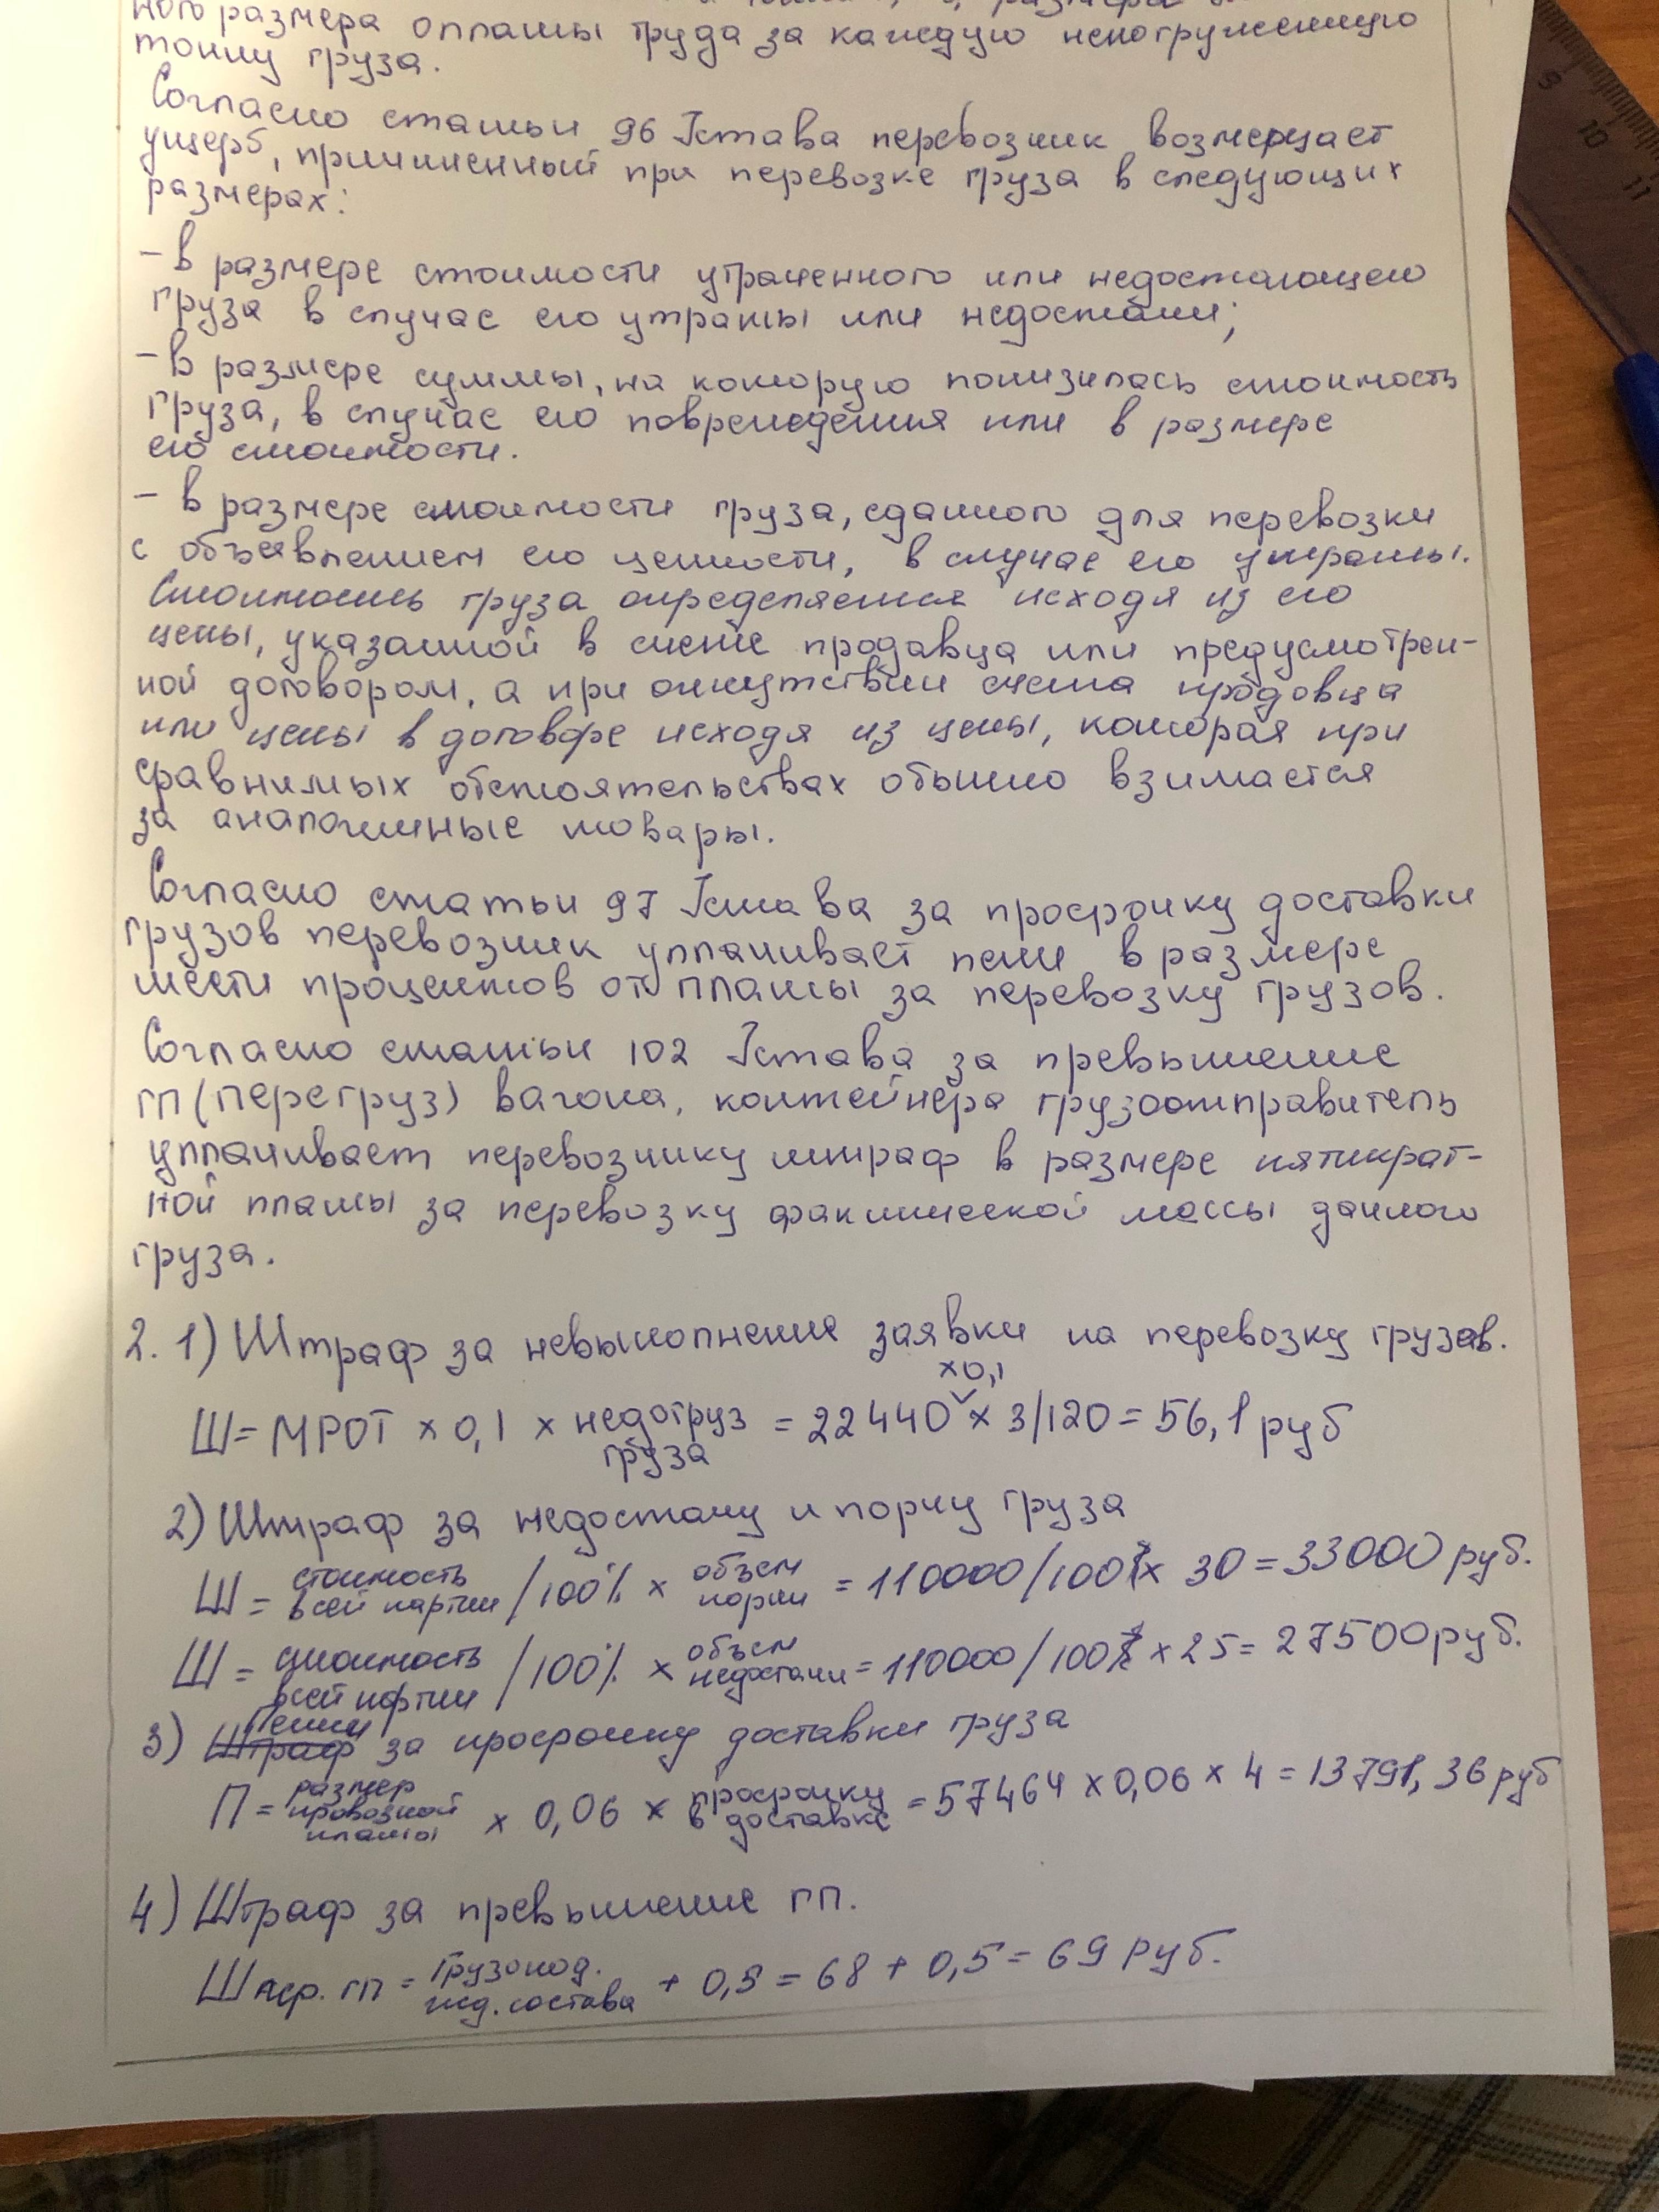 ного размера оплаты труда за каждую непогруженную
тонну груза.
Согласно статьи 96 Устава перевозчик возмещает
ущерб, причиненный при перевозке груза в следующих
размерах:
- в размере стоимости утраченного или недостающего
груза в случае его утраты или недостачи;
- в размере суммы, на которую понизилась стоимость
груза, в случае его повреждения или в размере
его стоимости.
- в размере стоимости груза, сданного для перевозки
с объявлением его ценности, в случае его утраты.
Стоимость груза определяется исходя из его
цены, указанной в счете продавца или предусмотрен-
ной договором, а при отсутствии счета продовца
или цены в договоре исходя из цены, которая при
сравнимых обстоятельствах обычно взимается
за аналогичные товары.
Согласно статьи 97 Устава за просрочку доставки
грузов перевозчик уплачивает пени в размере
шести процентов от платы за перевозку грузов.
Согласно статьи 102 Устава за превышение
ГП (перегруз) вагона, контейнера грузоотправитель
уплачивает перевозчику штраф в размере пятикрат-
ной платы за перевозку фактической массы данного
груза.
2. 1) Штраф за невыполнение заявки на перевозку грузов.
Ш = МРОТ × 0,1 × недогруз груза = 22440 ×0,1 × 3/120 = 56,1 руб
2) Штраф за недостачу и порчу груза
Ш = стоимость всей партии / 100% × объем порчи = 110000 / 100% × 30 = 33000 руб.
Ш = стоимость всей партии / 100% × объем недостачи = 110000 / 100% × 25 = 27500 руб.
3) Штраф Пенни за просрочку доставки груза
П = размер провозной платы × 0,06 × просрочку в доставке = 57464 × 0,06 × 4 = 13791,36 руб
4) Штраф за превышение ГП.
Ш пер. гп = Грузопод. жд. состава + 0,5 = 68 + 0,5 = 69 руб.